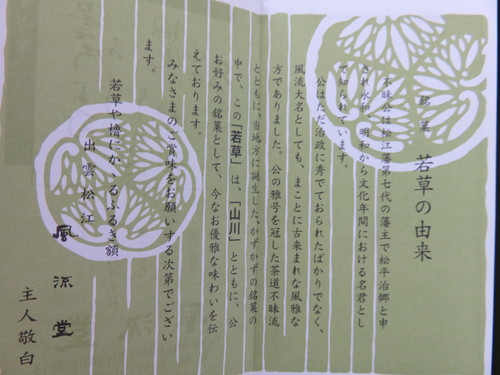 銘菓 若草の由来
不昧公は松江藩第七代の藩主で松平治郷と申
され永和、明和から文化年間における名君とし
て知られています。
公はただ治政に秀でておられたばかりでなく、
風流大名としても、まことに古来まれな風雅な
方でありました。公の雅号を冠した茶道不昧流
とともに、当地方に誕生した、かずかずの銘菓の
中で、この「若草」は、「山川」とともに、公
お好みの銘菓として、今なお優雅な味わいを伝
えております。
みなさまのご賞味をお願いする次第でござい
ます。
若草や櫓にかゝるふるき額
出雲松江
風流堂
主人敬白